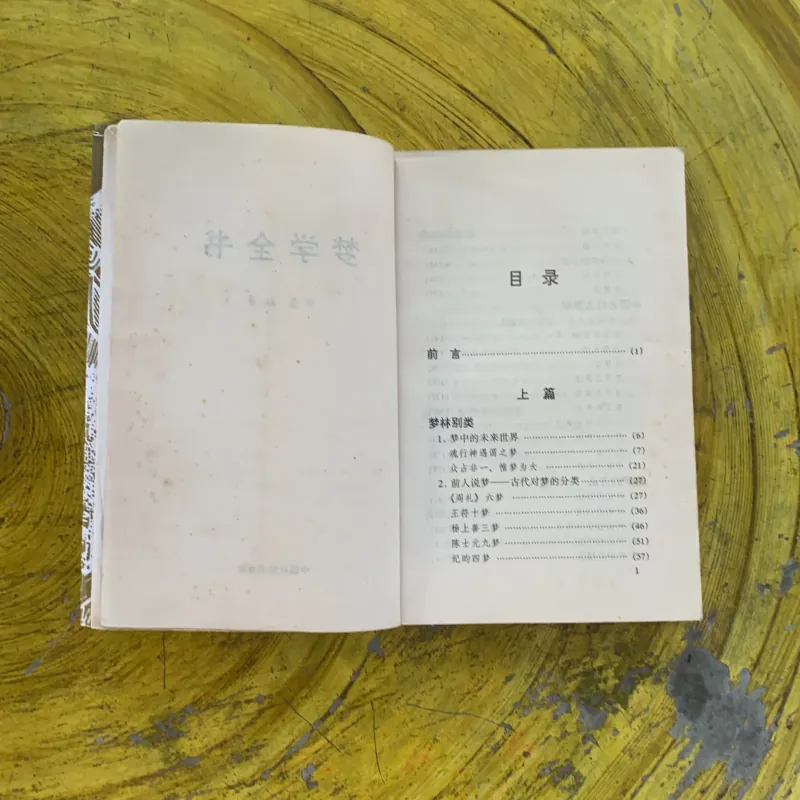 梦学全书
目录
前 言……………………………………………(1)
上 篇
梦林别类
1、梦中的未来世界……………………………(6)
魂行神遇谓之梦………………………………(7)
众占非一、惟梦为大…………………………(21)
2、前人说梦——古代对梦的分类……………(27)
《周礼》六梦…………………………………(27)
王符十梦………………………………………(36)
杨上善三梦……………………………………(46)
陈士元九梦……………………………………(51)
纪昀四梦………………………………………(57)
1